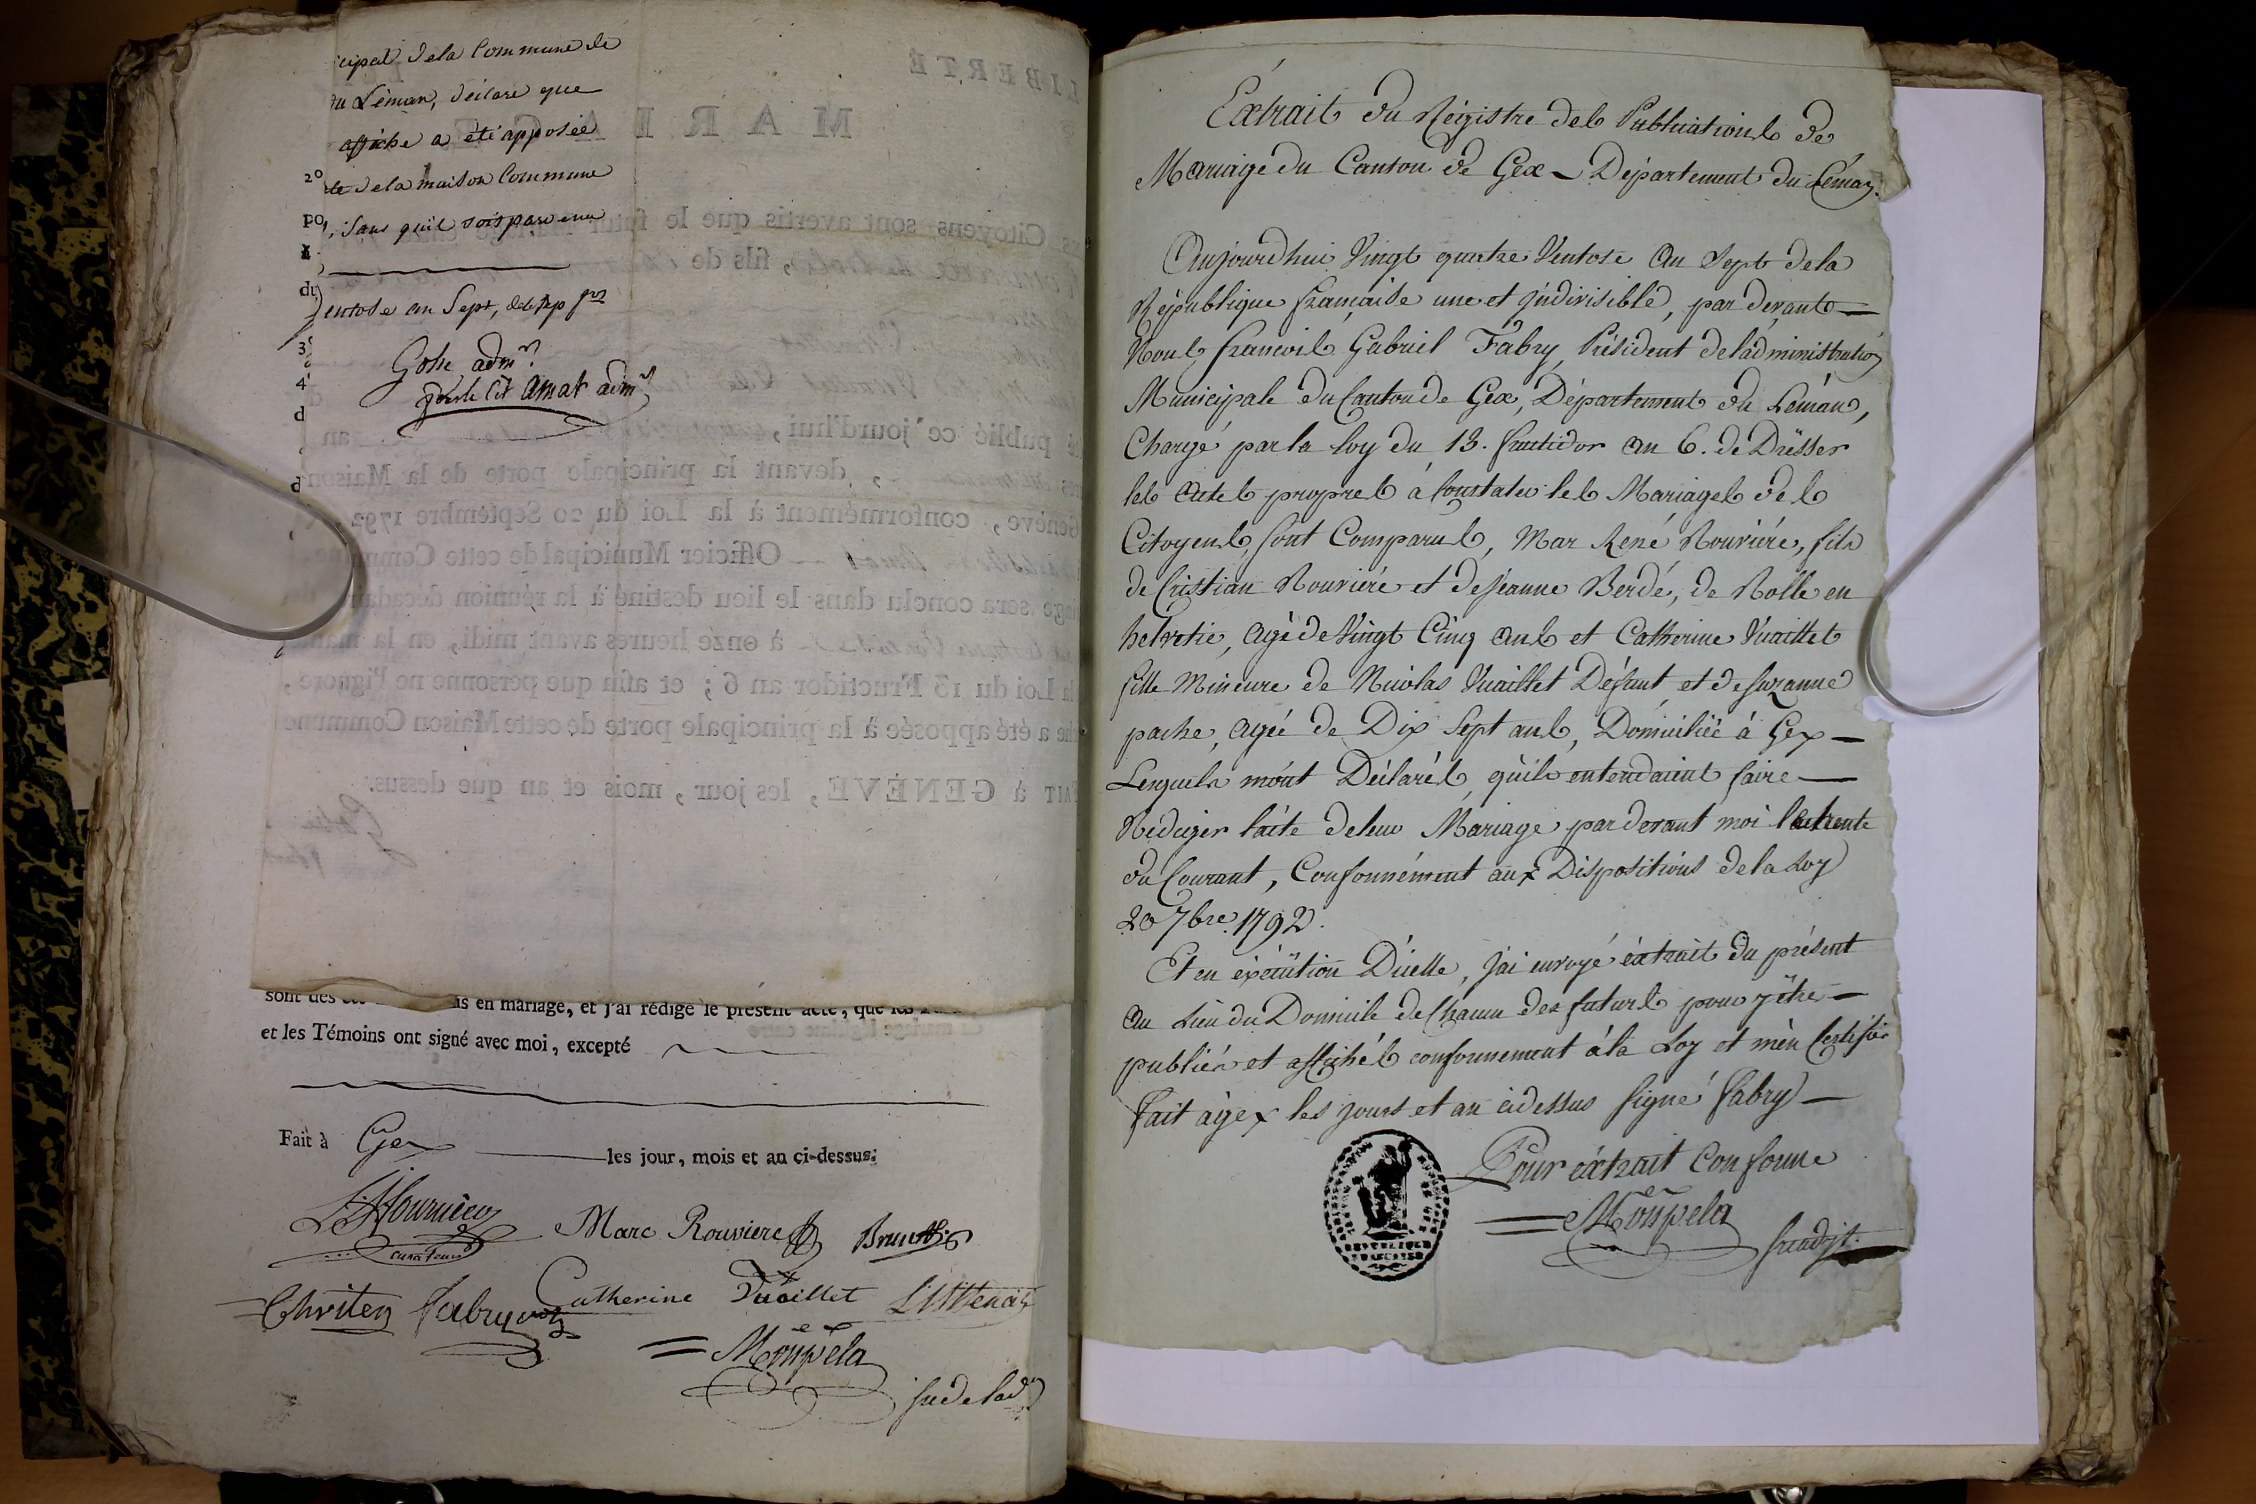 cipal de la Commune de
du Léman, déclare que
affiche a été apposée
20 le de la maison Commune
po, sans qu'il soit parvenu
du entose an Sept, de la rep fse
3
4
d
Gosse admr
pour le Cit Amat admr
LIBERTÉ
MARIAGE
Citoyens sont avertis que le futur
, fils de
publié ce jourd'hui, an
, devant la principale porte de la Maison
Genève, conformément à la Loi du 20 Septembre 1792,
Officier Municipal de cette Commune
sera conclu dans le lieu destiné à la réunion décadaire
à onze heures avant midi, en la
la Loi du 13 Fructidor an 6 ; et afin que personne ne l'ignore,
a été apposée à la principale porte de cette Maison Commune
FAIT à GENÈVE, les jour, mois et an que dessus.
sont des is en mariage, et j'ai rédigé le présent acte, que les
et les Témoins ont signé avec moi, excepté
Fait à Gex les jour, mois et an ci-dessus:
Marc Rouviere
curateur
Christen Fabry Catherine Vuaillet
Moupela
Extrait du Régistre des Publications de
Mariage du Canton de Gex - Département du Léman.
Aujourdhui Vingt quatre Ventose an Sept de la
République française une et jndivisible, par devant
Nous francois Gabriel Fabry Président deladministration
Municipale du Canton de Gex, Département du Léman,
Chargé par la loy du 13. fructidor an 6. de Drésser
les actes propres à Constater les Mariages des
Citoyens, sont Comparus, Mar René Rouviére, fils
de Cristian Rouviére et de Jeanne Berdé, de Rolle en
helvetie, agé de Vingt Cinq ans et Catherine Vuaillet
fille Mineure de Nicolas Vuaillet Défunt et de Suzanne
pache, agée de Dix Sept ans, Domiciliée à Gex
Lesquels m'ont Déclarés qu'ils entendaient faire
Rediger l'acte de leur Mariage par devant moi le trente
du Courant, Conformément aux Dispositions de la Loy
20 7bre 1792.
Et en éxécution D'icelle, j'ai envoyé éxtrait du présent
au Lieu du Domicile de Chacun des futurs pour y être
publiés et affichés conformement à la Loy et m'en Certifier
fait à gex les jours et an cidessus signé Fabry
Pour éxtrait Conforme
Moupela
RÉPUBLIQUE
FRANÇAISE